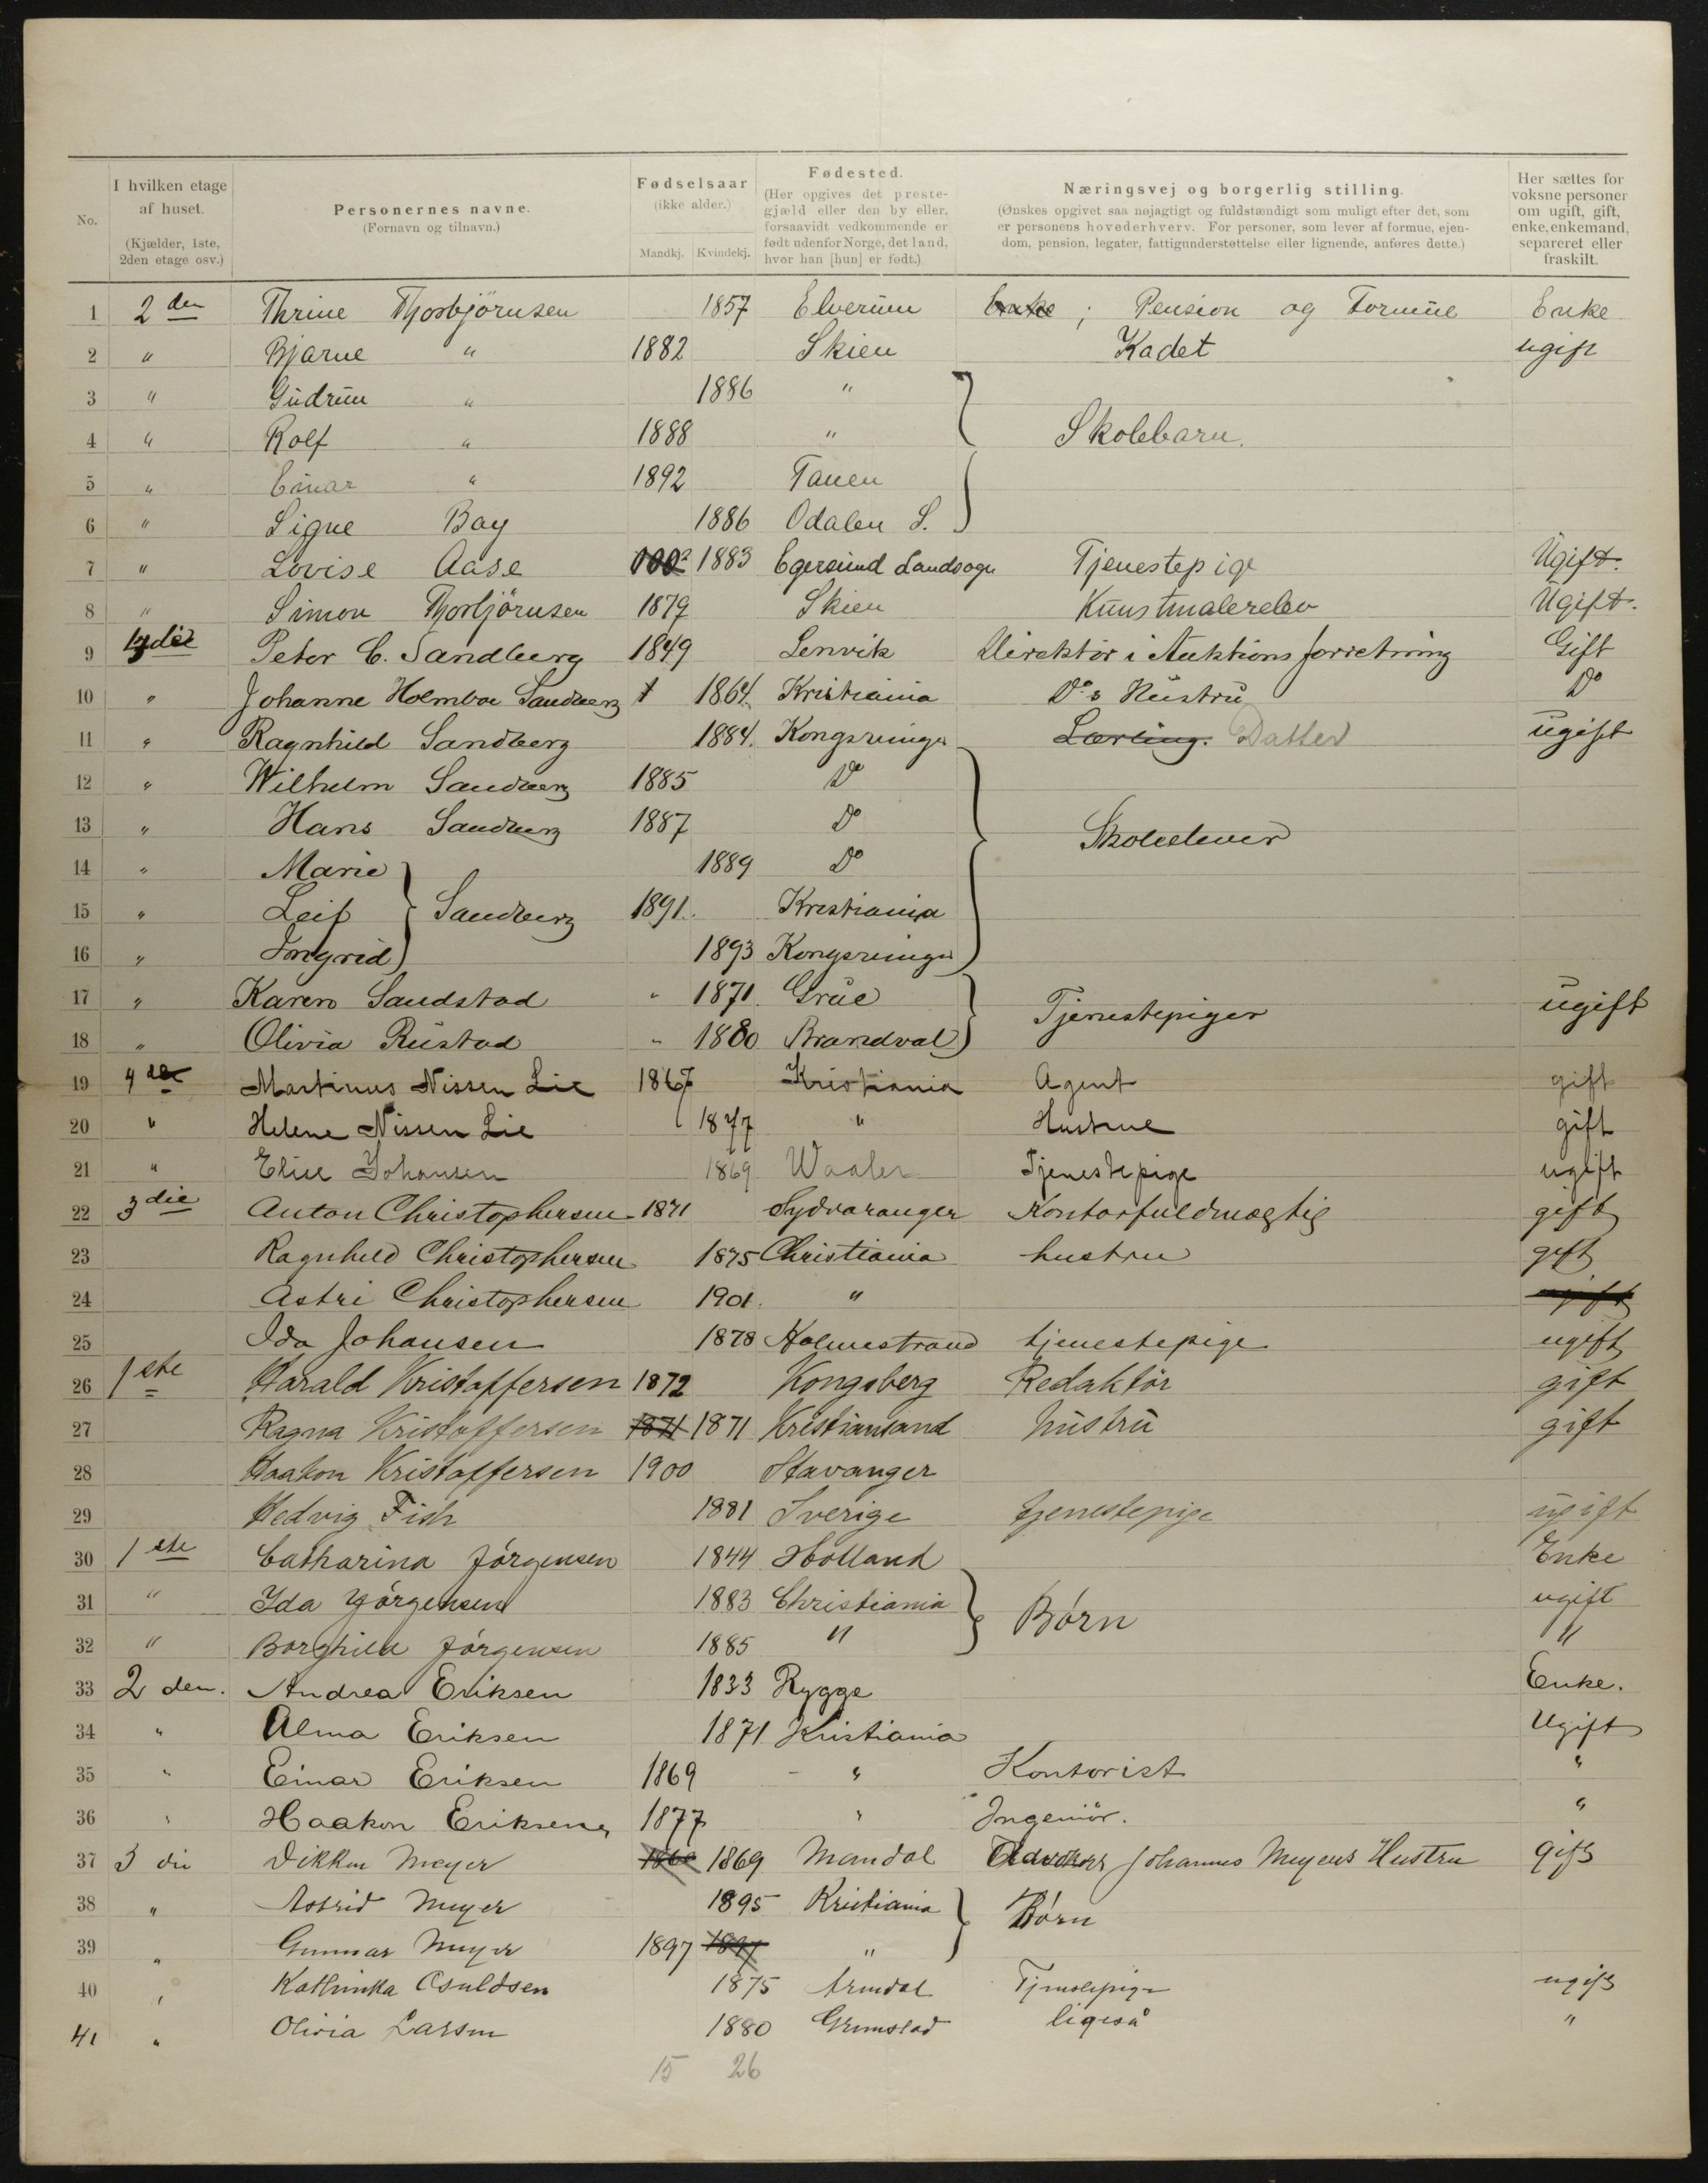 No.
I hvilken etage af huset. (Kjælder, 1ste, 2den etage osv.)
Personernes navne. (Fornavn og tilnavn.)
Fødselsaar (ikke alder.) Mandkj. Kvindekj.
Fødested. (Her opgives det prestegjæld eller den by eller, forsaavidt vedkommende er født udenfor Norge, det land, hvor han [hun] er født.)
Næringsvej og borgerlig stilling. (Ønskes opgivet saa nøjagtigt og fuldstændigt som muligt efter det, som er personens hovederhverv. For personer, som lever af formue, ejendom, pension, legater, fattigunderstøttelse eller lignende, anføres dette.)
Her sættes for voksne personer om ugift, gift, enke, enkemand, separeret eller fraskilt.
1 2den Thrine Thorbjörnsen 1857 Elverum Enke; Pension og Formue Enke
2 " Bjarne " 1882 Skien Kadet ugift
3 " Gudrun " 1886 "
4 " Rolf " 1888 " Skolebarn.
5 " Einar " 1892 Tanen
6 " Signe Bay 1886 Odalen S.
7 " Lovise Aase 1883 Egersund Landsogn Tjenestepige Ugift.
8 " Simon Thorbjörnsen 1879 Skien Kunstmalerelev Ugift.
9 3die Peter C. Sandberg 1849 Lenvik Direktör i Auktionsforretning Gift
10 " Johanne Holmboe Sandberg 1864. Kristiania Do s Hustru Do
11 " Ragnhild Sandberg 1884. Kongsvinger Lærling. Datter ugift
12 " Wilhelm Sandberg 1885 Do
13 " Hans Sandberg 1887 Do Skoleelever
14 " Marie 1889 Do
15 " Leif Sandberg 1891. Kristiania
16 " Ingrid 1893 Kongsvinger
17 " Karen Sandstad " 1871. Grue Tjenestepiger ugift
18 " Olivia Rustad " 1880 Brandval
19 4de Martinus Nissen Lie 1867 Kristiania Agent gift
20 " Helene Nissen Lie 1877 " Hustrue gift
21 " Elise Johansen 1869 Waaler Tjenestepige ugift
22 3die Anton Christophersen 1871 Sydvaranger Kontorfuldmægtig gift
23 Ragnhild Christophersen 1875 Christiania hustru gift
24 Astri Christophersen 1901. "
25 Ida Johansen 1878 Holmestrand tjenestepige ugift
26 1ste Harald Kristoffersen 1872 Kongsberg Redaktör gift
27 Ragna Kristoffersen 1871 1871 Kristiansand hustru gift
28 Haakon Kristoffersen 1900 Stavanger
29 Hedvig Fish 1881 Sverige tjenestepige ugift
30 1ste Catharina Jörgensen 1844 Holland Enke
31 " Ida Jörgensen 1883 Christiania Börn ugift
32 " Borghild Jörgensen 1885 " "
33 2 den. Andrea Eriksen 1833 Rygge Enke.
34 " Alma Eriksen 1871 Kristiania Ugift
35 " Einar Eriksen 1869 " Kontorist "
36 " Haakon Eriksen 1877 " Ingeniör. "
37 3 die Dikken Meyer 1869 Mandal Johannes Meyers Hustru gift
38 " Astrid Meyer 1895 Kristiania Börn
39 " Gunnar Meyer 1897 1897 "
40 " Kathinka Osuldsen 1875 Arendal Tjenestepige ugift
41 " Olivia Larsen 1880 Grimstad ligeså "
15 26